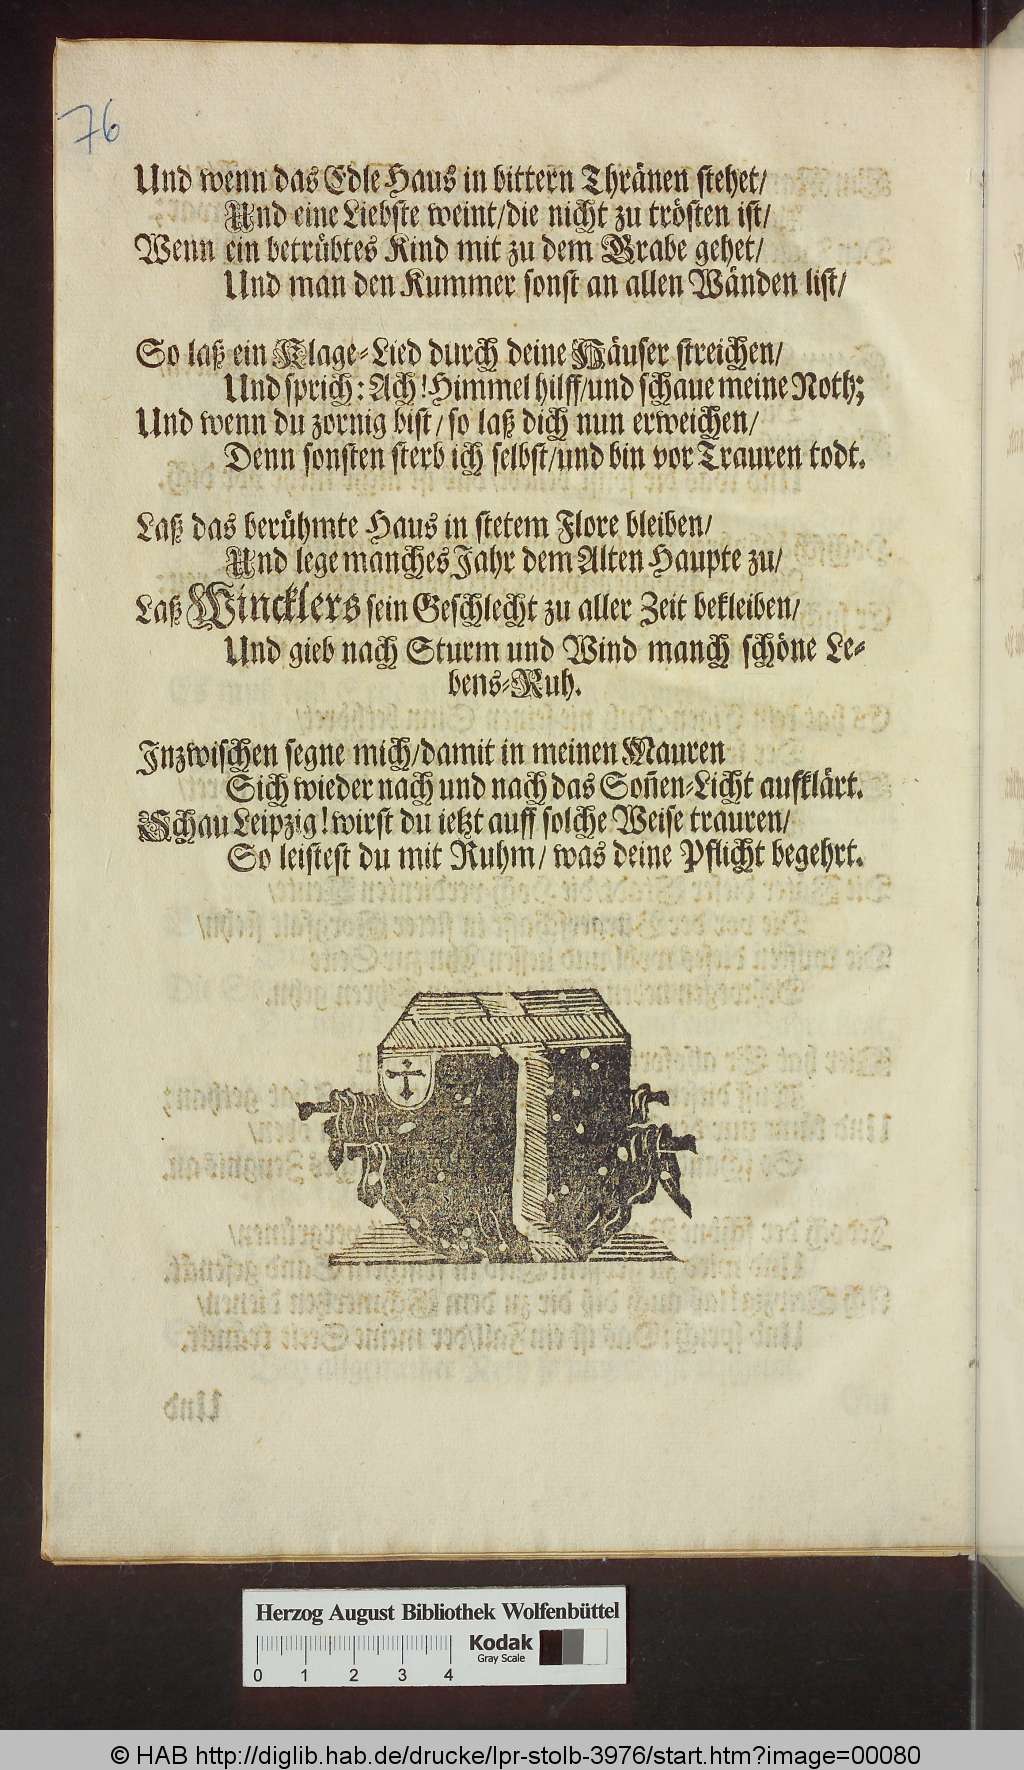 76
Und wenn das Edle Haus in bittern Thränen stehet/
Und eine Liebste weint/die nicht zu trösten ist/
Wenn ein betrübtes Kind mit zu dem Grabe gehet/
Und man den Kummer sonst an allen Wänden list/
So laß ein Klage-Lied durch deine Häuser streichen/
Und sprich: Ach! Himmel hilff/und schaue meine Noth;
Und wenn du zornig bist/ so laß dich nun erweichen/
Denn sonsten sterb ich selbst/und bin vor Trauren todt.
Laß das berühmte Haus in stetem Flore bleiben/
Und lege manches Jahr dem Alten Haupte zu/
Laß Wincklers sein Geschlecht zu aller Zeit bekleiben/
Und gieb nach Sturm und Wind manch schöne Le-
bens-Ruh.
Inzwischen segne mich/damit in meinen Mauren
Sich wieder nach und nach das Soñen-Licht aufklärt.
Schau Leipzig! wirst du ietzt auff solche Weise trauren/
So leistest du mit Ruhm/ was deine Pflicht begehrt.
Herzog August Bibliothek Wolfenbüttel
0 1 2 3 4
Kodak
Gray Scale
© HAB http://diglib.hab.de/drucke/lpr-stolb-3976/start.htm?image=00080